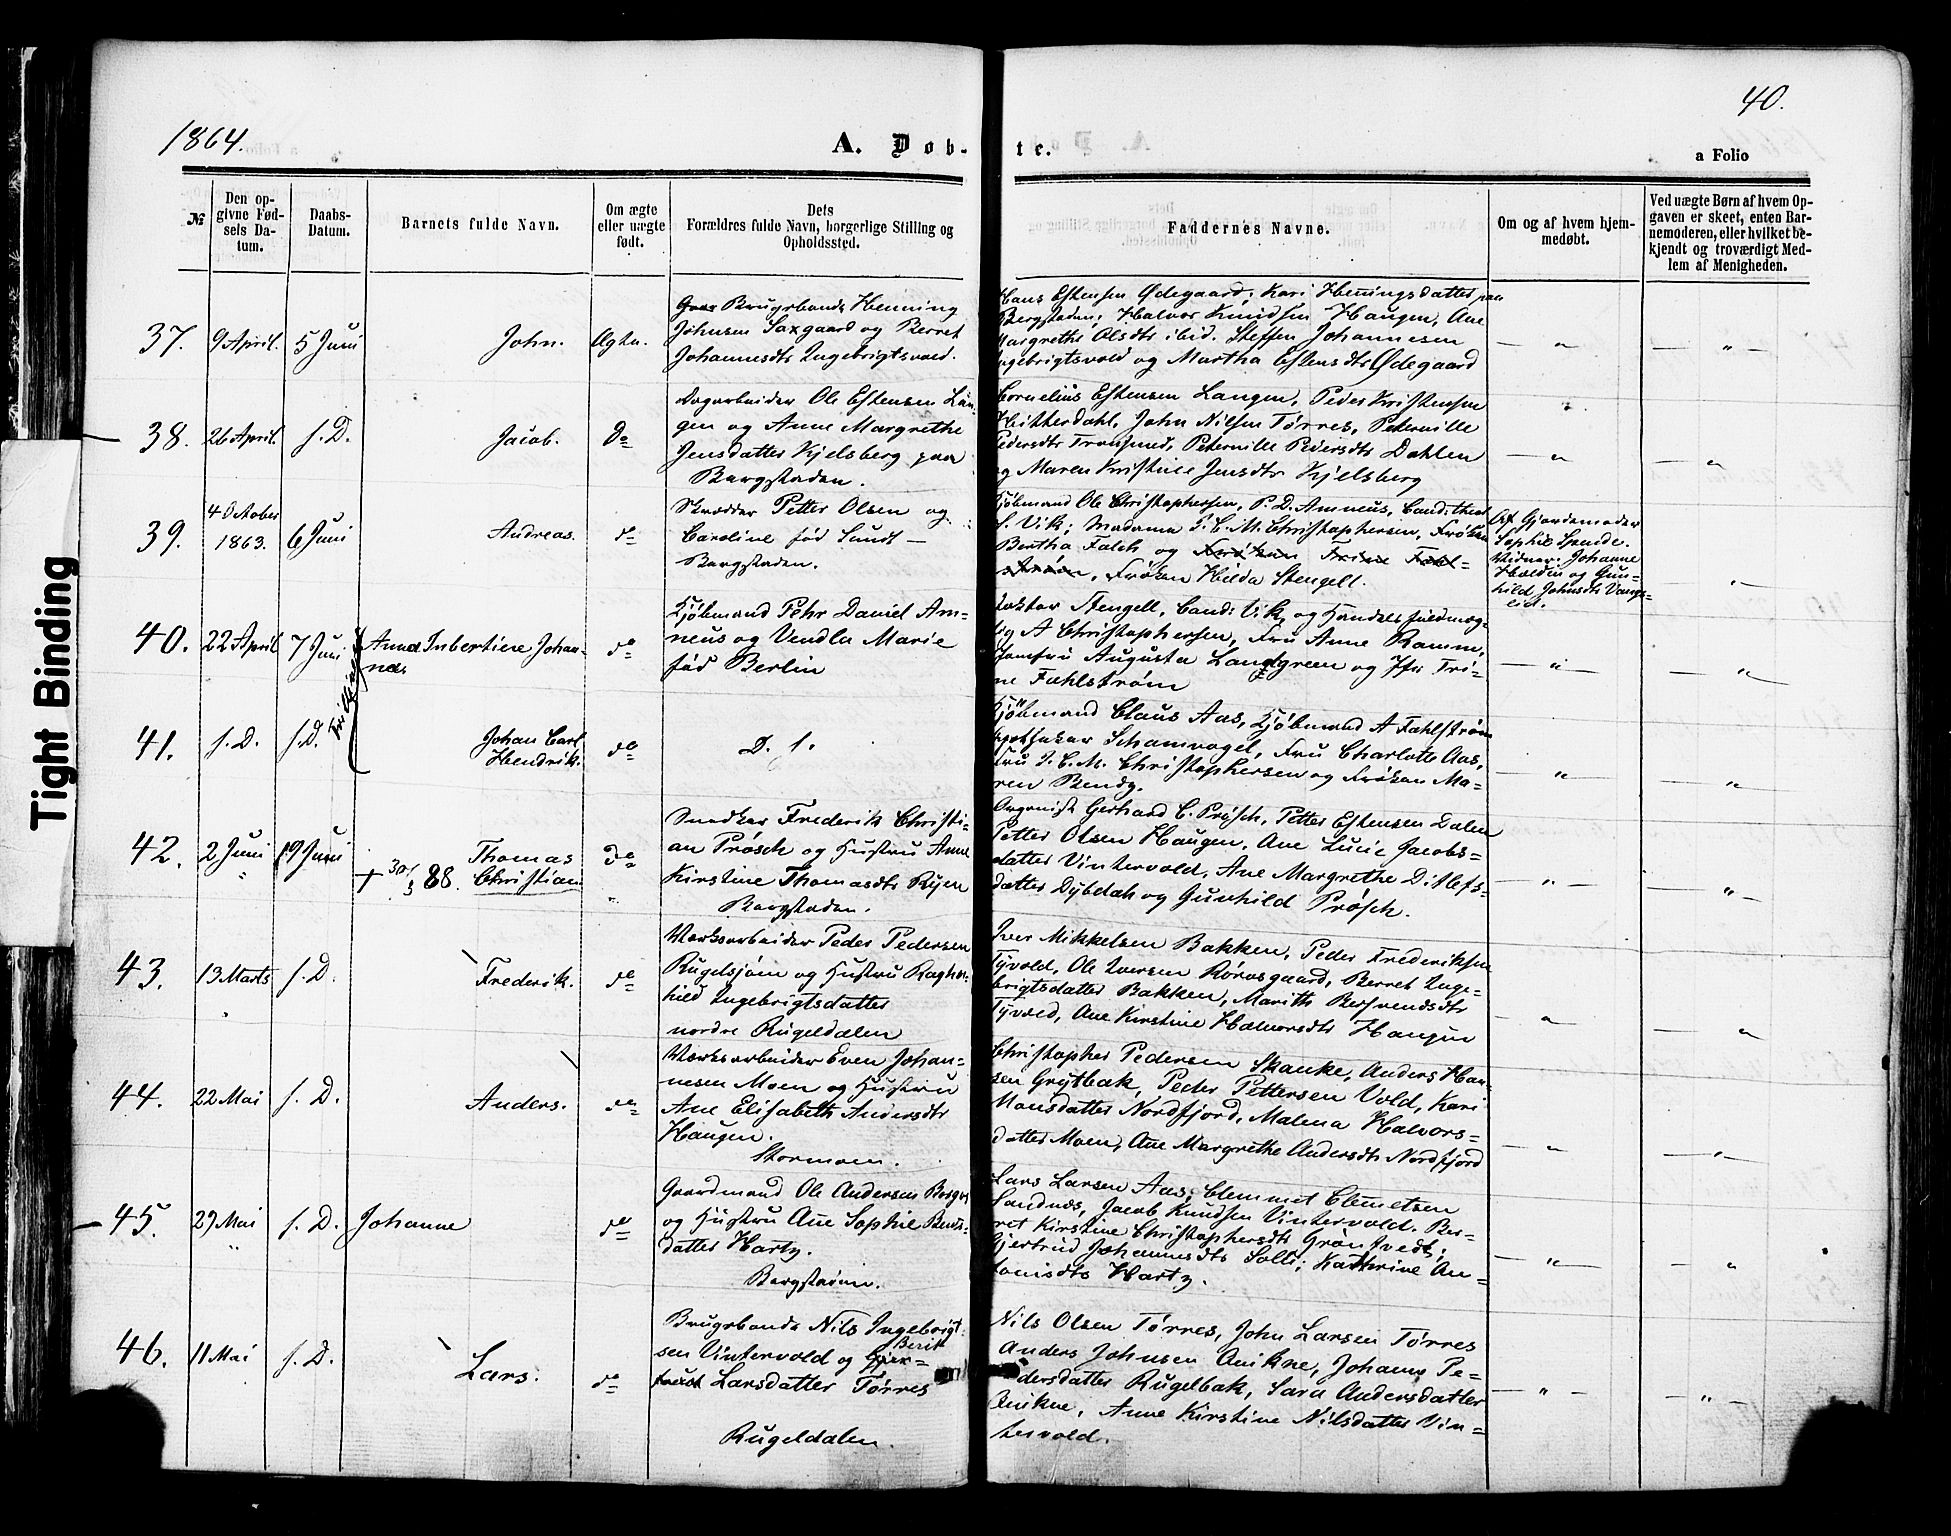 40.
1864.
A. Døb-
te.
a Folio
№
Den op-
givne Fød-
sels Da-
tum.
Daabs-
Datum.
Barnets fulde Navn.
Om ægte
eller uægte
født.
Dets
Forældres fulde Navn, borgerlige Stilling og
Opholdssted.
Faddernes Navne.
Om og af hvem hjem-
medøbt.
Ved uægte Børn af hvem Op-
gaven er skeet, enten Bar-
nemoderen, eller hvilket be-
kjendt og troværdigt Med-
lem af Menigheden.
37.
9 April.
5 Juni
John.
Ægte.
Brugsbonde Henning
Johnsen Saxgaard og Berret
Johannesdtr Ingebrigtsvold.
Hans Estensen Ødegaard; Kari Henningsdatter paa
Bergstaden; Halvor Knudsen Haugen, Ane
Margrethe Olsdtr ibid. Steffen Johannesen
Ingebrigtsvold og Martha Estensdtr Ødegaard
— " —
— " —
38.
26 April.
s. D.
Jacob.
Do
Dagarbeider Ole Estensen Lan-
gen og Anne Margrethe
Jensdatter Kjelsberg paa
Bergstaden.
Cornelius Estensen Langen, Peder Kristensen
Hitterdahl, John Nilsen Tørres, Peternille
Pedersdtr Tronsmed, Peternille Pedersdtr Dahlen
og Maren Kristine Jensdtr Kjelsberg
— " —
— " —
39.
4 October
1863.
6 Juni
Andreas.
do
Skrædder Petter Olsen og
Caroline fød Sundt —
Bergstaden.
Kjøbmand Ole Christophersen, P. D. Amneus, Cand: theol
S. Vik; Madame J. C. M. Christophersen, Frøken
Bertha Falch og Frøken Trine Fahl-
strøm, Frøken Hilda Stengell.
Af Gjordemoder
Sophie Sjende.
Vidner: Johanne
Holden og Gun-
hild Johnsdtr Vangs-
lid.
— " —
40.
22 April
7 Juni
Anna Inbertine Johan-
na.
do
Kjøbmand Pehr Daniel Am-
neus og Vendla Marie
fød Berlin
Doktor Stengell, Cand: Vik, og Handelsfuldmæg-
tig A Christophersen, Fru Anne Ramm,
Jomfru Augusta Landgreen og Jfr Tri-
ne Fahlstrøm
— " —
— " —
41.
s. D.
s. D.
Johan Carl
Hendrik.
do
D. s.
Kjøbmand Claus Aas, Kjøbmand A Fahlstrøm
Apotheker Schamvogel, Fru Charlotte Aas,
Fru J. C. M. Christophersen og Frøken Ma-
ren Bendz.
— " —
— " —
42.
2 Juni
"
19 Juni
+ 30/3 88.
Thomas
Christian
do
Snedker Frederik Christi-
an Prøsch og Hustru Anne
Kirstine Thomasdtr Ryen
Bergstaden.
Organist Gerhard C. Prøsch, Petter Estensen Dalen
Petter Olsen Haugen, Ane Lucie Jacobs-
datter Vintervold, Ane Margrethe Ditlefs-
datter Dybdah og Gunhild Prøsch.
— " —
— " —
43.
13 Marts
"
s. D.
Frederik.
do
Værksarbeider Peder Pedersen
Rugelsjøen og Hustru Ragn-
hild Ingebrigtsdatter
nordre Rugeldalen
Iver Mikkelsen Bakken, Peder Frederiksen
Tyvold, Ole Iversen Rørosgaard, Berret Inge-
brigtsdatter Bakken, Marith Bersvendsdtr
Tyvold, Ane Kirstine Halvorsdtr Haugen
— " —
— " —
44.
22 Mai
s. D.
Anders.
do
Værksarbeider Even Johan-
nesen Moen og Hustru
Ane Elisabeth Andersdtr
Haugen.
Stormoen.
Christopher Pedersen Skanke, Anders Han-
sen Grytbak, Peder Pettersen Vold, Kari
Monsdatter Nordfjord, Malena Halvors-
datter Moen, Ane Margrethe Andersdtr Nordfjord
— " —
— " —
45.
29 Mai
"
s. D.
Johanne
do
Gaardmand Ole Andersen Borgos
og Hustru Ane Sophie Bents-
datter Hartz.
Bergstaden.
Lars Larsen Aas, Clemmet Clemetsen
Sandnæs, Jacob Knudsen Vintervold. Ber-
ret Kirstine Christophersdtr Grøntvedt;
Gjertrud Johannesdtr Solli; Kathrine An-
tonisdtr Hartz.
— " —
— " —
46.
11 Mai
s. D.
Lars.
do
Brugsbonde Nils Ingebrigt-
sen Vintervold og Gjer- Berit
trud Larsdatter Tørres
Rugeldalen.
Nils Olsen Tørres, John Larsen Tørres
Anders Johnsen Qvikne, Johanne Pe-
dersdatter Rugelbak, Sara Andersdatter
Qvikne, Anne Kirstine Nilsdatter Vin-
tervold.
— " —
— " —
Tight Binding